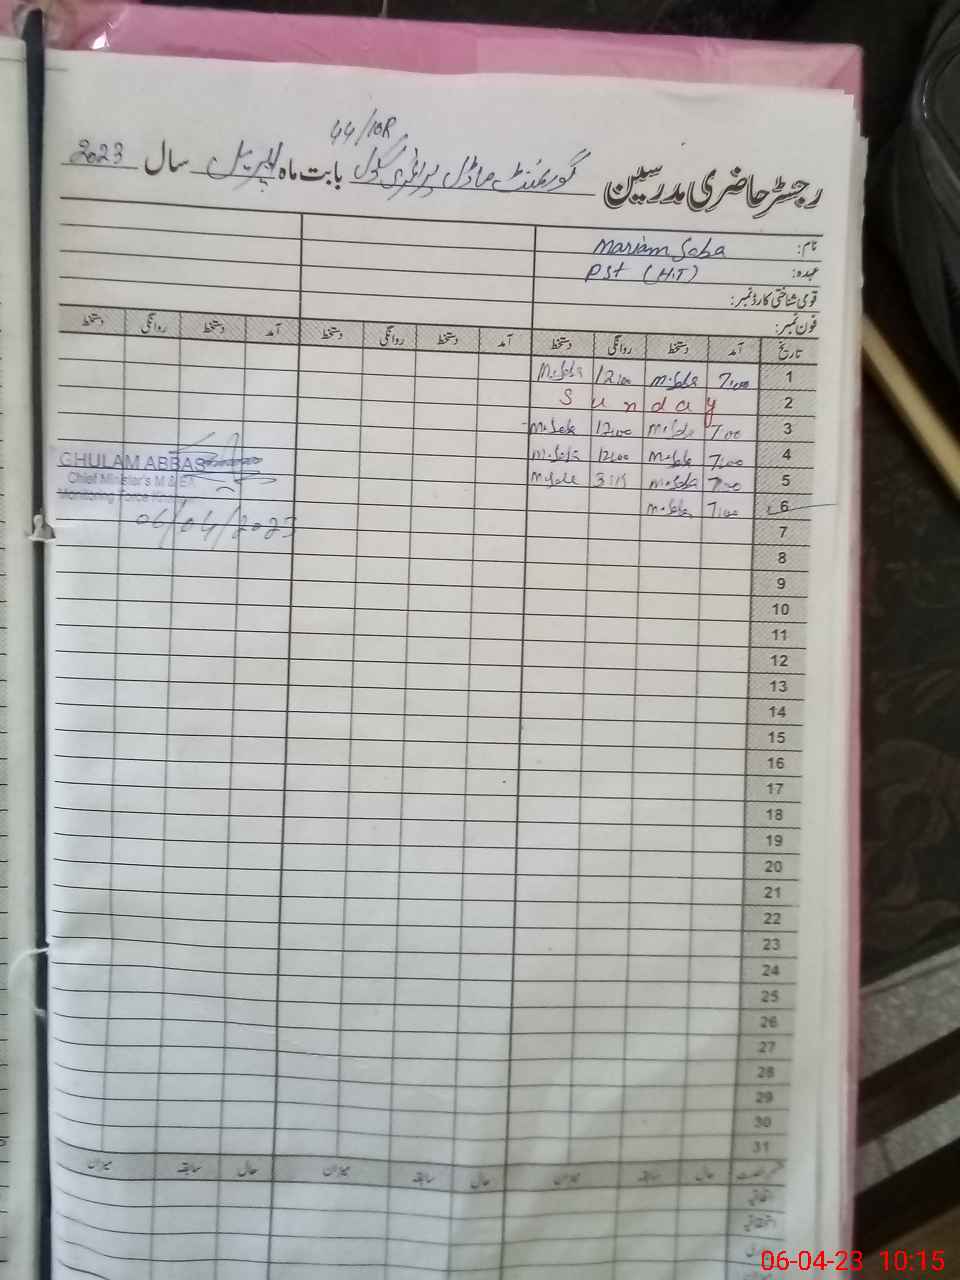 44/10R
رجسٹر حاضری مدرسین گورنمنٹ ماڈل پرائمری سکول بابت ماہ اپریل سال 2023
نام: Mariam Saba
عہدہ: PST (H.T)
قومی شناختی کارڈ نمبر:
فون نمبر:
تاریخ آمد دستخط روانگی دستخط آمد دستخط روانگی دستخط آمد دستخط روانگی دستخط
1 7:00 M.Saba 12:00 M.Saba
2 Sunday
3 7:00 M.Saba 12:00 M.Saba
4 7:00 M.Saba 12:00 M.Saba
5 7:00 M.Saba M.Saba
6 7:00 M.Saba
GHULAM ABBAS
Chief Minister's M & E
Monitoring Force
06/04/2023
7
8
9
10
11
12
13
14
15
16
17
18
19
20
21
22
23
24
25
26
27
28
29
30
31
حال سابقہ میزان حال سابقہ میزان حال سابقہ میزان
اتفاقیہ
06-04-23 10:15